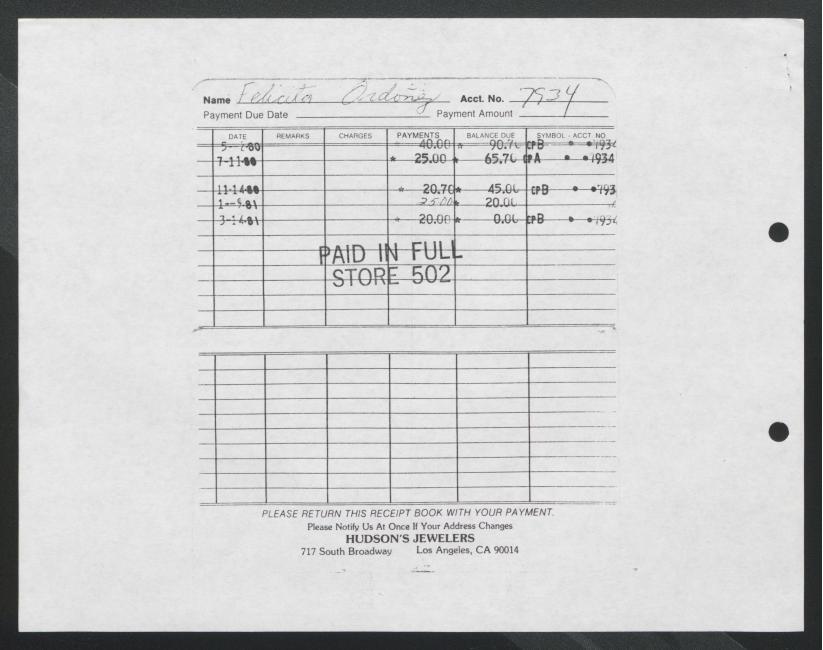 Name Felicita Ordoñez Acct. No. 7934
Payment Due Date Payment Amount
DATE REMARKS CHARGES PAYMENTS BALANCE DUE SYMBOL - ACCT. NO.
40.00 * 90.70 CPB
7-11-80 * 25.00 * 65.70 CPA 7934
11-14-80 * 20.70 * 45.00 CPB 793
25.00 * 20.00
3-14-81 * 20.00 * 0.00 CPB 7934
PAID IN FULL
STORE 502
PLEASE RETURN THIS RECEIPT BOOK WITH YOUR PAYMENT.
Please Notify Us At Once If Your Address Changes
HUDSON'S JEWELERS
717 South Broadway Los Angeles, CA 90014